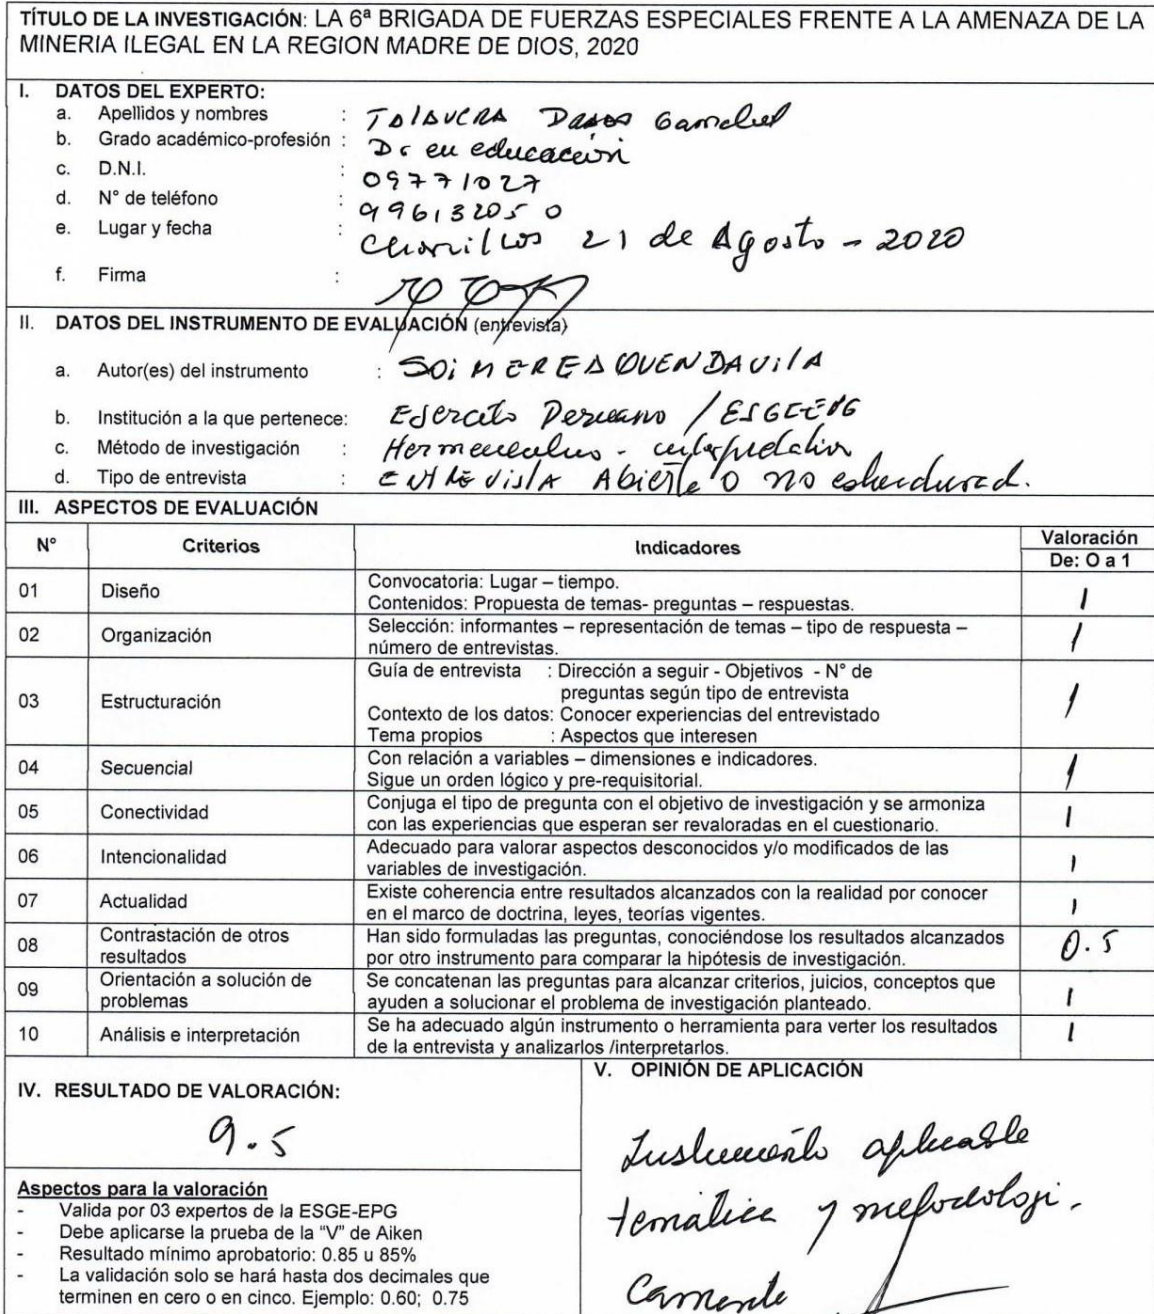 TÍTULO DE LA INVESTIGACIÓN: LA 6ª BRIGADA DE FUERZAS ESPECIALES FRENTE A LA AMENAZA DE LA
MINERIA ILEGAL EN LA REGION MADRE DE DIOS, 2020
I. DATOS DEL EXPERTO:
a. Apellidos y nombres : TALAVERA
b. Grado académico-profesión : Dr en educación
c. D.N.I. : 09771027
d. N° de teléfono : 996132050
e. Lugar y fecha : Chorrillos 21 de Agosto - 2020
f. Firma :
II. DATOS DEL INSTRUMENTO DE EVALUACIÓN (entrevista)
a. Autor(es) del instrumento :
b. Institución a la que pertenece: Ejercito Peruano /
c. Método de investigación : Hermeneutico - interpretativo
d. Tipo de entrevista : Entrevista Abierta o no estructurad.
III. ASPECTOS DE EVALUACIÓN
N° Criterios Indicadores Valoración
De: O a 1
01 Diseño Convocatoria: Lugar – tiempo.
Contenidos: Propuesta de temas- preguntas – respuestas. 1
02 Organización Selección: informantes – representación de temas – tipo de respuesta –
número de entrevistas. 1
03 Estructuración Guía de entrevista : Dirección a seguir - Objetivos - N° de
preguntas según tipo de entrevista
Contexto de los datos: Conocer experiencias del entrevistado
Tema propios : Aspectos que interesen 1
04 Secuencial Con relación a variables – dimensiones e indicadores.
Sigue un orden lógico y pre-requisitorial. 1
05 Conectividad Conjuga el tipo de pregunta con el objetivo de investigación y se armoniza
con las experiencias que esperan ser revaloradas en el cuestionario. 1
06 Intencionalidad Adecuado para valorar aspectos desconocidos y/o modificados de las
variables de investigación. 1
07 Actualidad Existe coherencia entre resultados alcanzados con la realidad por conocer
en el marco de doctrina, leyes, teorías vigentes. 1
08 Contrastación de otros resultados Han sido formuladas las preguntas, conociéndose los resultados alcanzados
por otro instrumento para comparar la hipótesis de investigación. 0.5
09 Orientación a solución de problemas Se concatenan las preguntas para alcanzar criterios, juicios, conceptos que
ayuden a solucionar el problema de investigación planteado. 1
10 Análisis e interpretación Se ha adecuado algún instrumento o herramienta para verter los resultados
de la entrevista y analizarlos /interpretarlos. 1
IV. RESULTADO DE VALORACIÓN:
9.5
Aspectos para la valoración
- Valida por 03 expertos de la ESGE-EPG
- Debe aplicarse la prueba de la "V" de Aiken
- Resultado mínimo aprobatorio: 0.85 u 85%
- La validación solo se hará hasta dos decimales que
terminen en cero o en cinco. Ejemplo: 0.60; 0.75
V. OPINIÓN DE APLICACIÓN
Instrumento aplicable
temática y metodologi-
camente